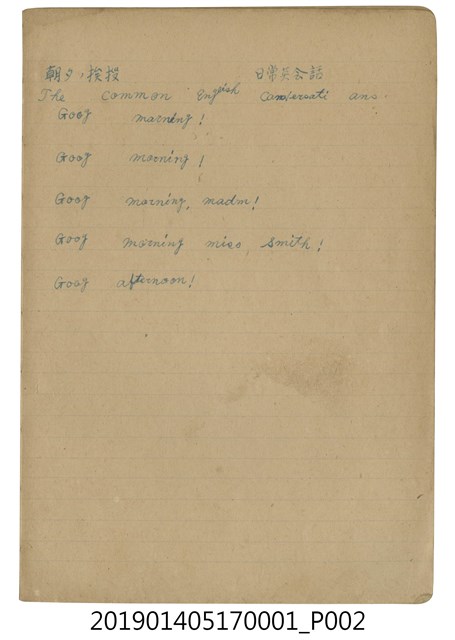 朝夕ノ挨拶 日常英会話
The common English conversations.
Goog marning!
Goog morning!
Goog morning, madm!
Goog morning miss, Smith!
Goog afternoon!
201901405170001_P002